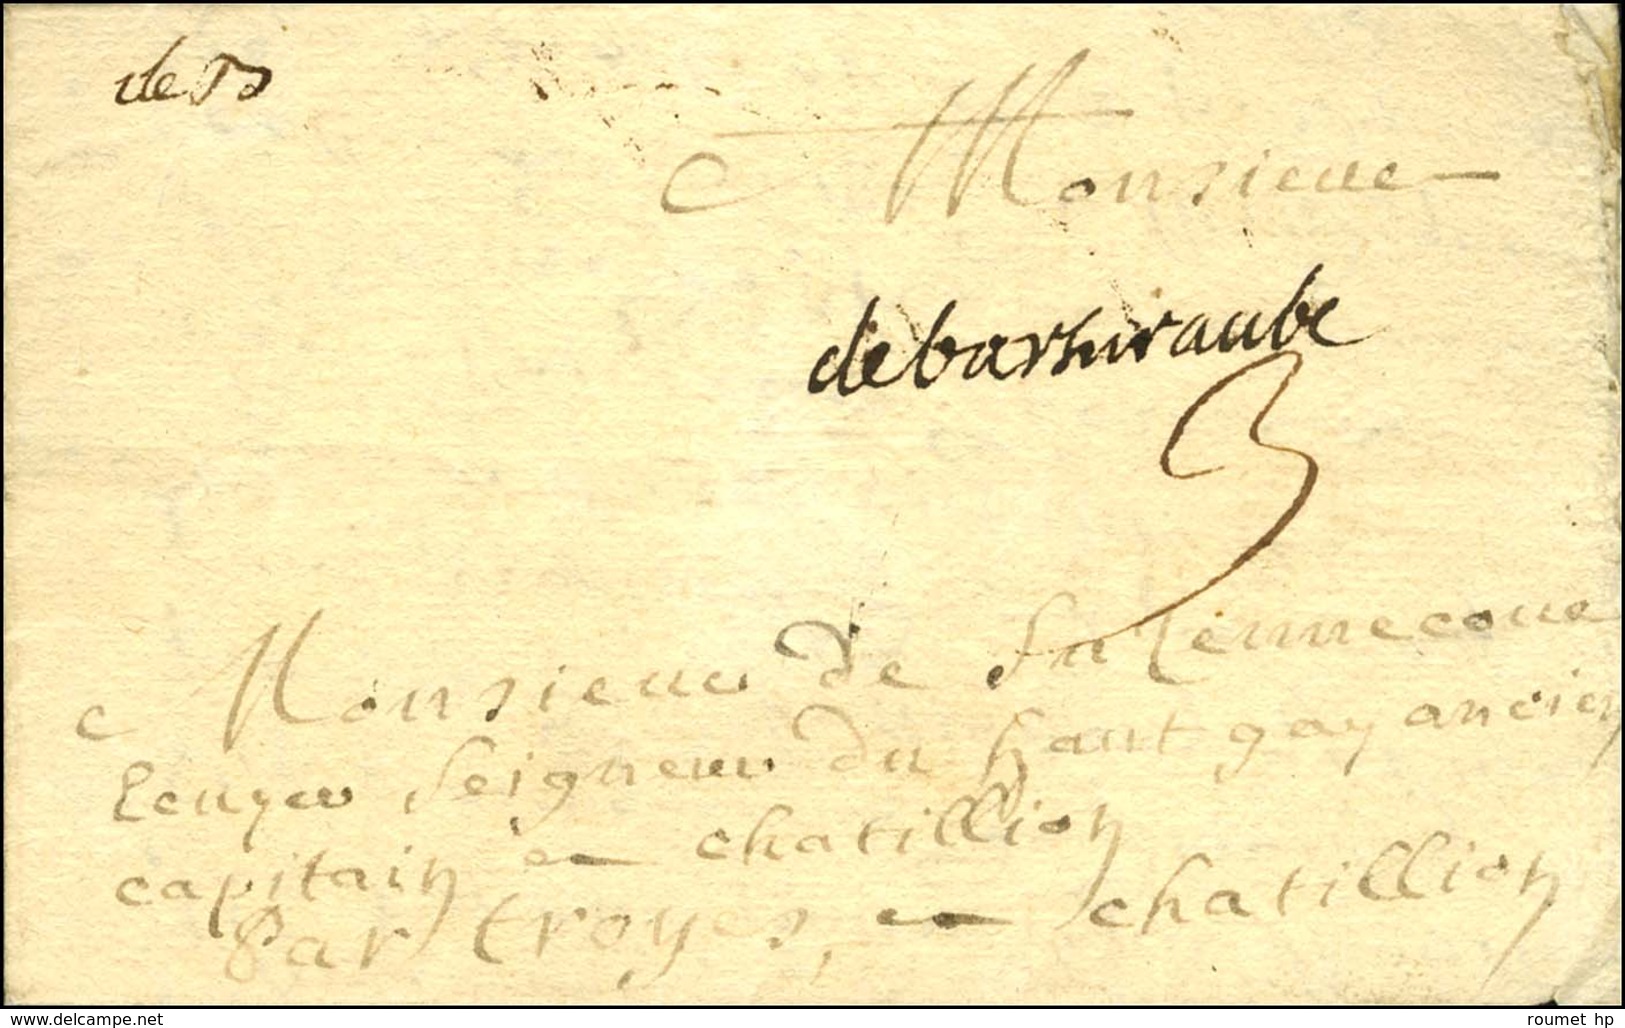 de B
A Monsieur
debarsuraube
3
A Monsieur de
Ecuyer Seigneur du haut gay ancien
capitain a chatillion
Par troyes, a chatillion
www.delcampe.net
roumet hp